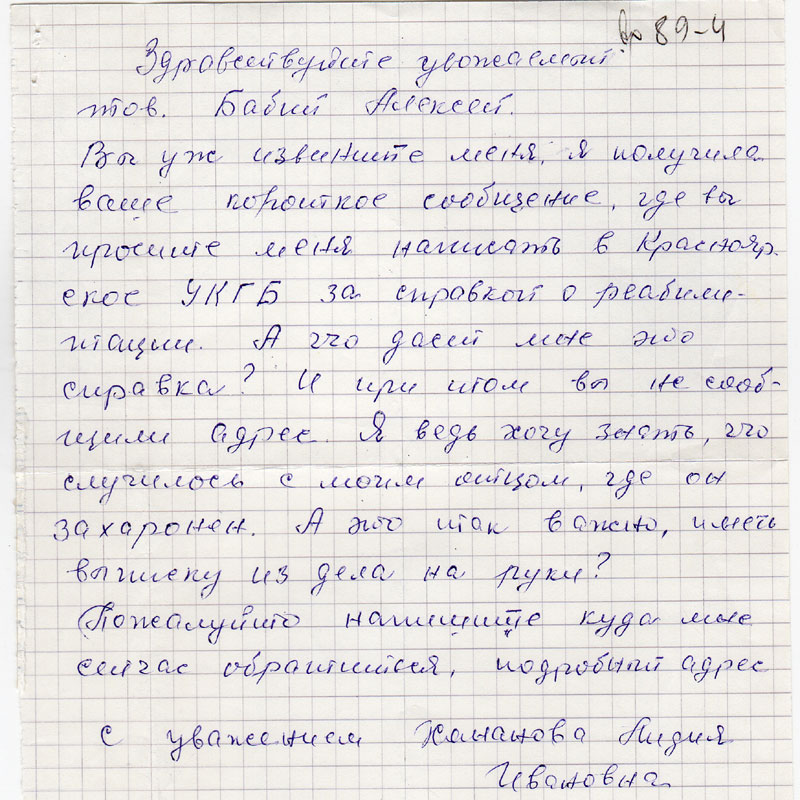 89-4
Здравствуйте уважаемый
тов. Бабий Алексей.
Вы уж извините меня, я получила
ваше короткое сообщение, где вы
просите меня написать в Краснояр-
ское УКГБ за справкой о реабили-
тации. А что даст мне это
справка? И при этом вы не сооб-
щили адрес. Я ведь хочу знать, что
случилось с моим отцом, где он
захаронен. А это так важно, иметь
выписку из дела на руки?
Пожалуйто напишите куда мне
сейчас обратиться, подробный адрес
С уважением Лидия
Ивановна